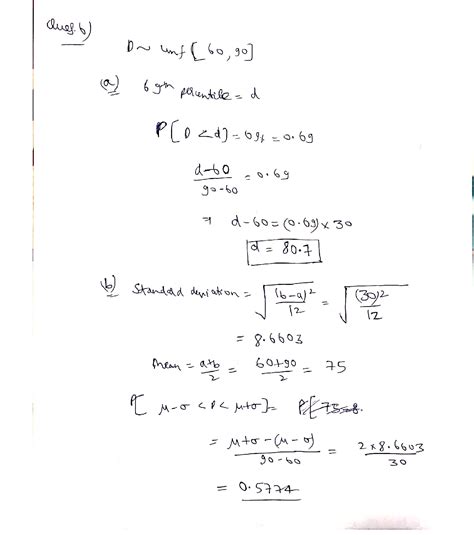 Ques.6)
D ~ Unif [60, 90]
(a) 69th percentile = d
P[D < d] = 69% = 0.69
d-60 / 90-60 = 0.69
⇒ d-60 = (0.69) × 30
d = 80.7
(b) Standard deviation = √((b-a)² / 12) = √((30)² / 12)
= 8.6603
Mean = a+b / 2 = 60+90 / 2 = 75
P[ μ-σ < D < μ+σ ] = P[75-8.
= μ+σ-(μ-σ) / 90-60 = 2×8.6603 / 30
= 0.5774